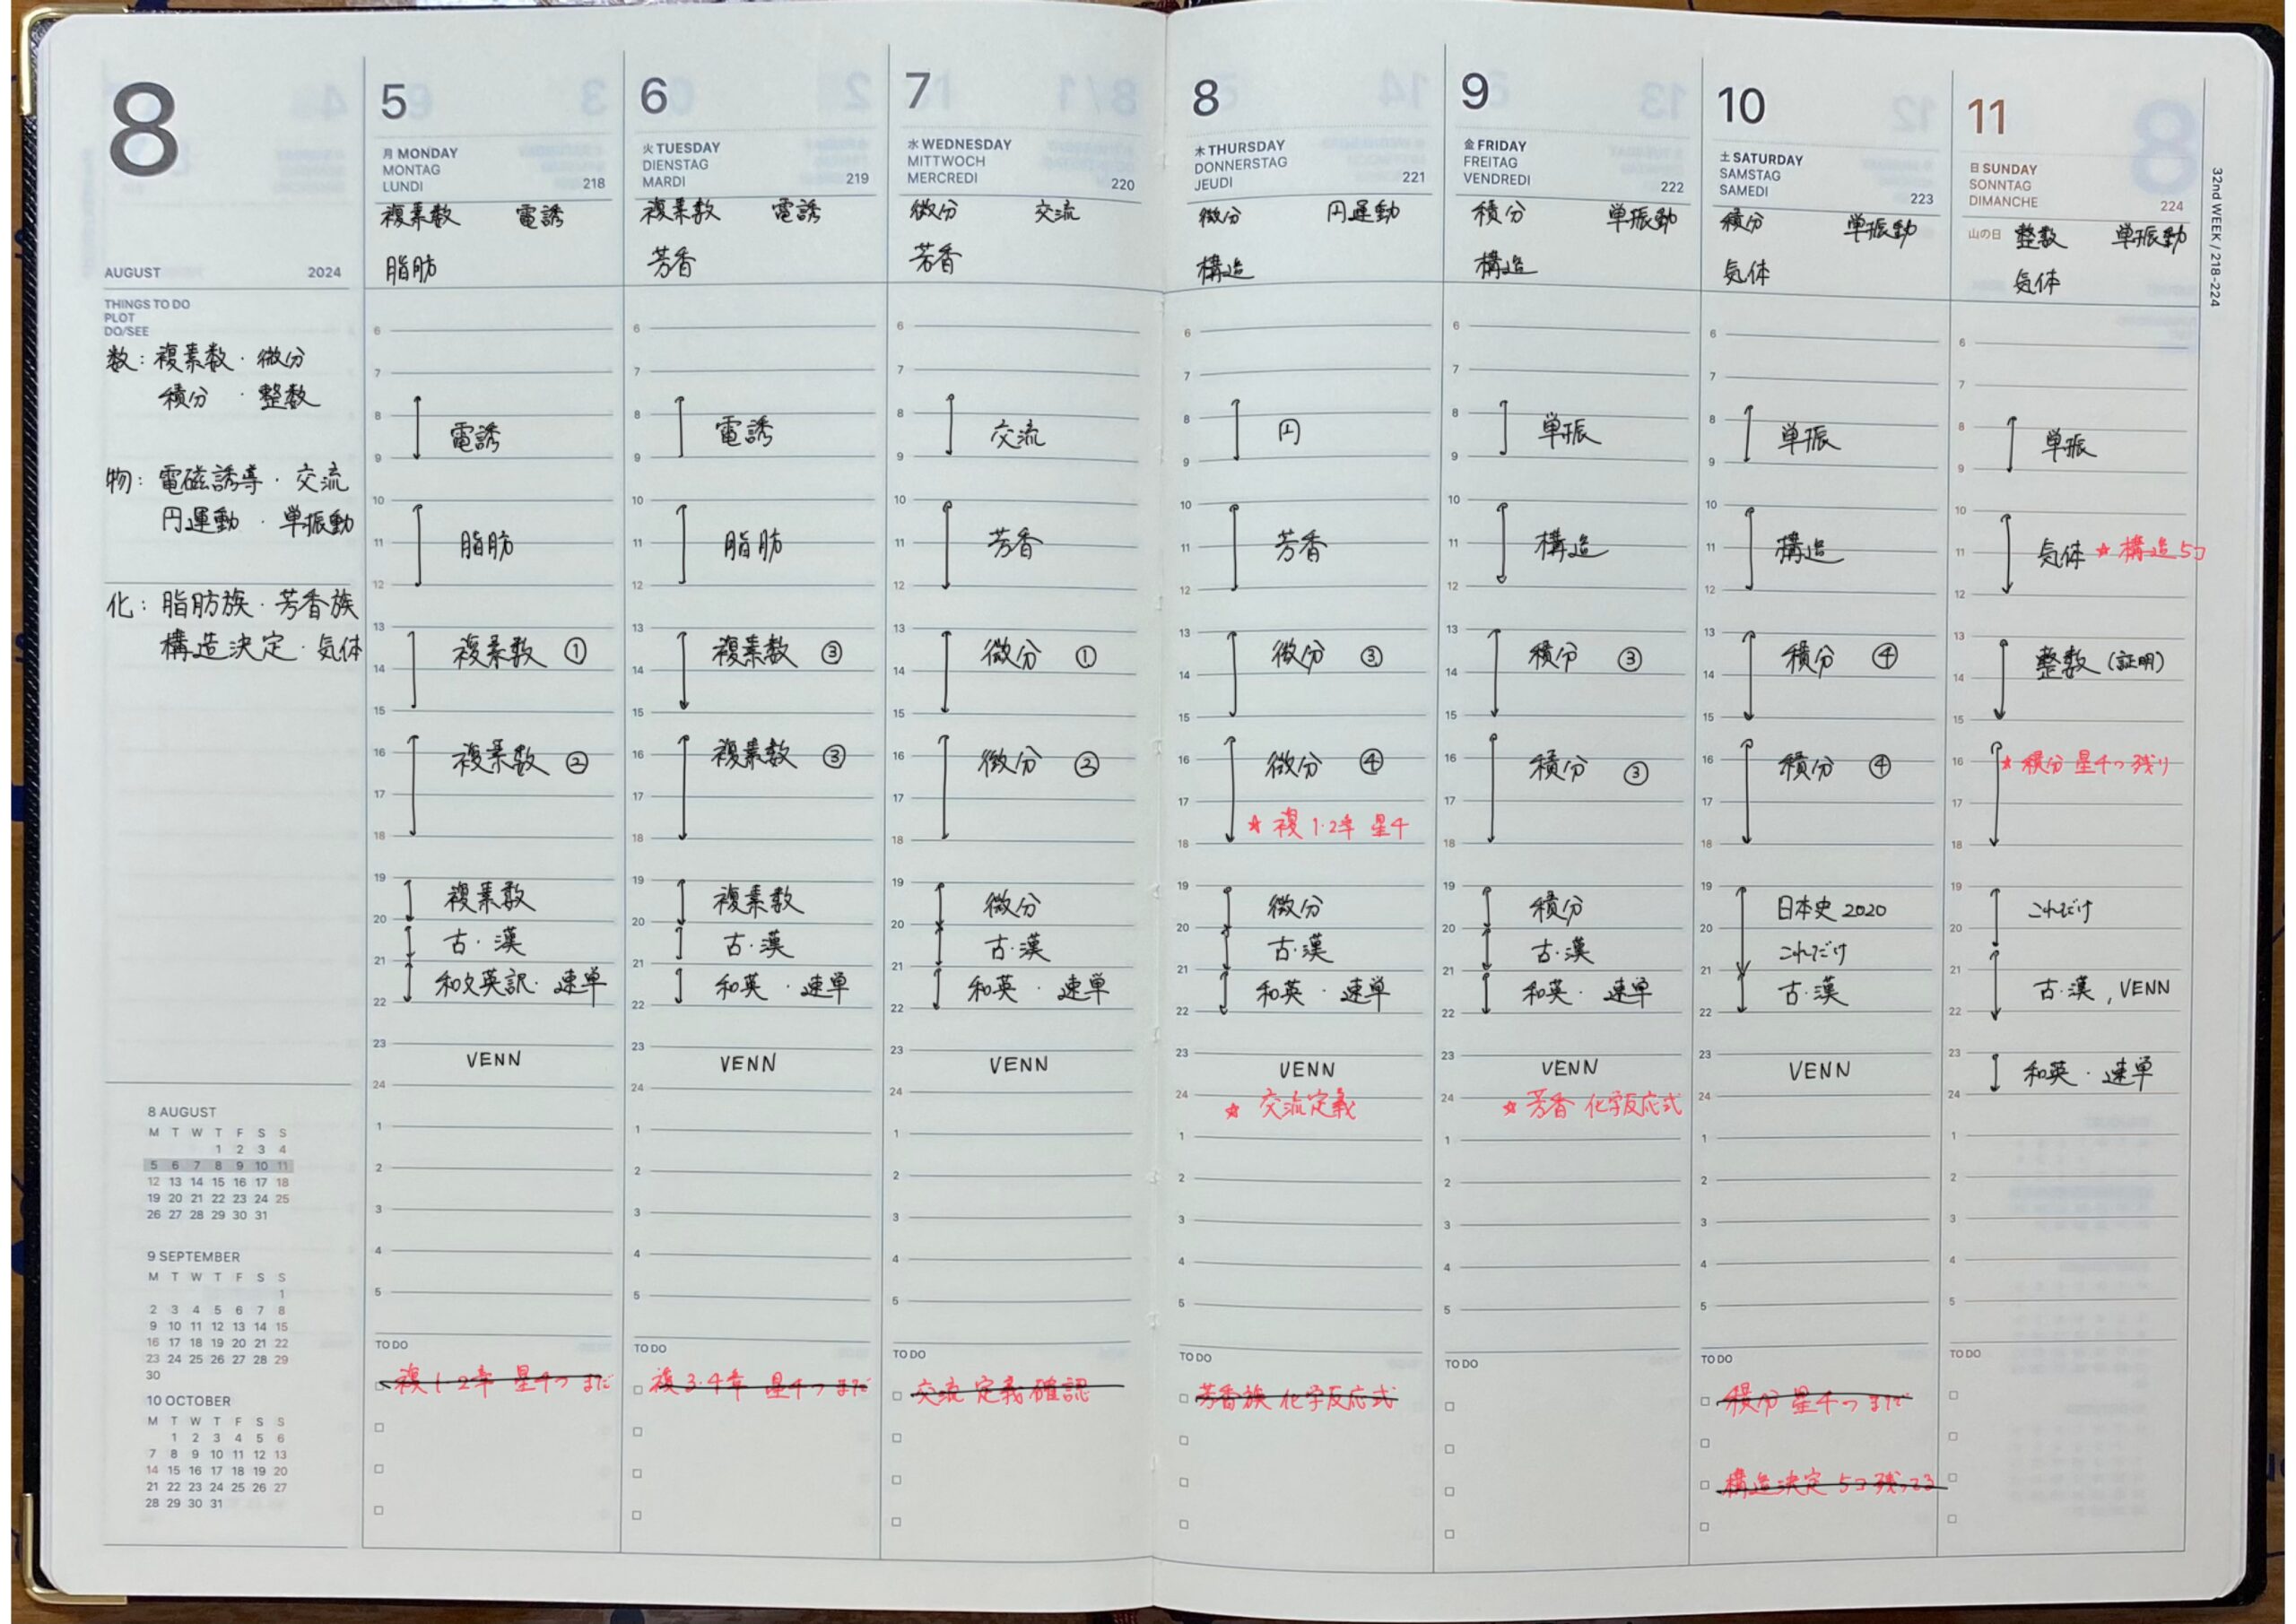 8
AUGUST 2024
THINGS TO DO
PLOT
DO/SEE
数: 複素数・微分
積分・整数
物: 電磁誘導・交流
円運動・単振動
化: 脂肪族・芳香族
構造決定・気体
8 AUGUST
M T W T F S S
1 2 3 4
5 6 7 8 9 10 11
12 13 14 15 16 17 18
19 20 21 22 23 24 25
26 27 28 29 30 31
9 SEPTEMBER
M T W T F S S
1
2 3 4 5 6 7 8
9 10 11 12 13 14 15
16 17 18 19 20 21 22
23 24 25 26 27 28 29
30
10 OCTOBER
M T W T F S S
1 2 3 4 5 6
7 8 9 10 11 12 13
14 15 16 17 18 19 20
21 22 23 24 25 26 27
28 29 30 31
5
月 MONDAY
MONTAG
LUNDI 218
複素数 電誘
脂肪
6
7
8
電誘
9
10
11 脂肪
12
13
複素数 ①
14
15
16 複素数 ②
17
18
19
複素数
20
古・漢
21
和文英訳・速単
22
23
VENN
24
1
2
3
4
5
TO DO
複1・2章 星4つまで
6
火 TUESDAY
DIENSTAG
MARDI 219
複素数 電誘
芳香
6
7
8
電誘
9
10
11 脂肪
12
13
複素数 ③
14
15
16 複素数 ③
17
18
19
複素数
20
古・漢
21
和英・速単
22
23
VENN
24
1
2
3
4
5
TO DO
複3・4章 星4つまで
7
水 WEDNESDAY
MITTWOCH
MERCREDI 220
微分 交流
芳香
6
7
8
交流
9
10
11 芳香
12
13
微分 ①
14
15
16 微分 ②
17
18
19
微分
20
古・漢
21
和英・速単
22
23
VENN
24
1
2
3
4
5
TO DO
交流 定義確認
8
木 THURSDAY
DONNERSTAG
JEUDI 221
微分 円運動
構造
6
7
8
円
9
10
11 芳香
12
13
微分 ③
14
15
16 微分 ④
17
☆ 複1・2章 星4
18
19
微分
20
古・漢
21
和英・速単
22
23
VENN
24
☆ 交流定義
1
2
3
4
5
TO DO
芳香族 化学反応式
9
金 FRIDAY
FREITAG
VENDREDI 222
積分 単振動
構造
6
7
8
単振
9
10
11 構造
12
13
積分 ③
14
15
16
積分 ③
17
18
19
積分
20
古・漢
21
和英・速単
22
23
VENN
24
☆ 芳香 化学反応式
1
2
3
4
5
TO DO
10
土 SATURDAY
SAMSTAG
SAMEDI 223
積分 単振動
気体
6
7
8
単振
9
10
11 構造
12
13
積分 ④
14
15
16 積分 ④
17
18
19
日本史 2020
20
これだけ
21
古・漢
22
23
VENN
24
1
2
3
4
5
TO DO
積分 星4つまで
構造決定 5コ残ってる
11
日 SUNDAY
SONNTAG
DIMANCHE 224
山の日 整数 単振動
気体
6
7
8
単振
9
10
11 気体 ☆ 構造5コ
12
13
整数 (証明)
14
15
16 ☆ 積分 星4つ残り
17
18
19
これだけ
20
21
古・漢, VENN
22
23
和英・速単
24
1
2
3
4
5
TO DO
32nd WEEK / 218-224